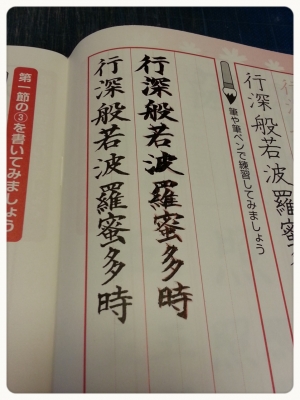 行深般若波羅蜜多時
筆や筆ペンで練習してみましょう
行深般若波羅蜜多時
行深般若波羅蜜多時
第一節の③を書いてみましょう